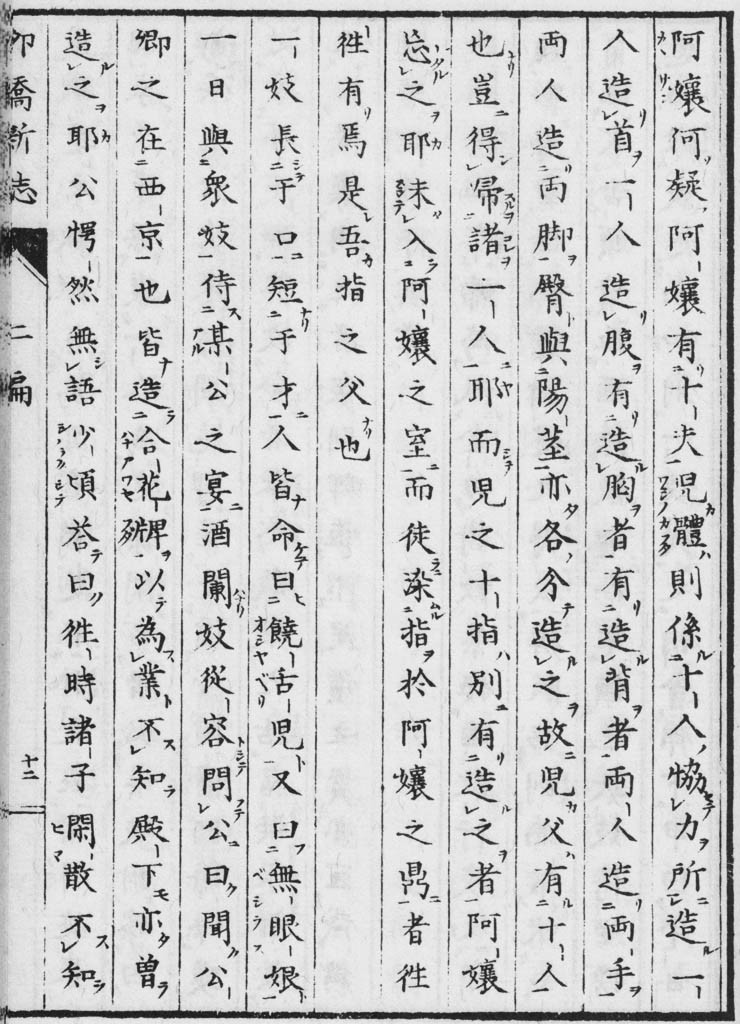 阿孃何疑阿孃有十夫児體則係十人恊力所造一
人造首一人造腹有造胸者有造背者両人造両手
両人造両脚臀與陽莖亦各分造之故児父有十人
也豈得帰諸一人耶而児之十指別有造之者阿孃
忘之耶未入阿孃之室而徒染指於阿孃之鼎者徃
徃有焉是吾指之父也
一妓長于口短于才人皆命曰饒舌児又曰無眼娘
一日與衆妓侍某公之宴酒闌妓從容問公曰聞公
卿之在西京也皆造合花牌以為業不知殿下亦曽
造之耶公愕然無語少頃荅曰徃時諸子閑散不知
柳橋新志 二編 十二